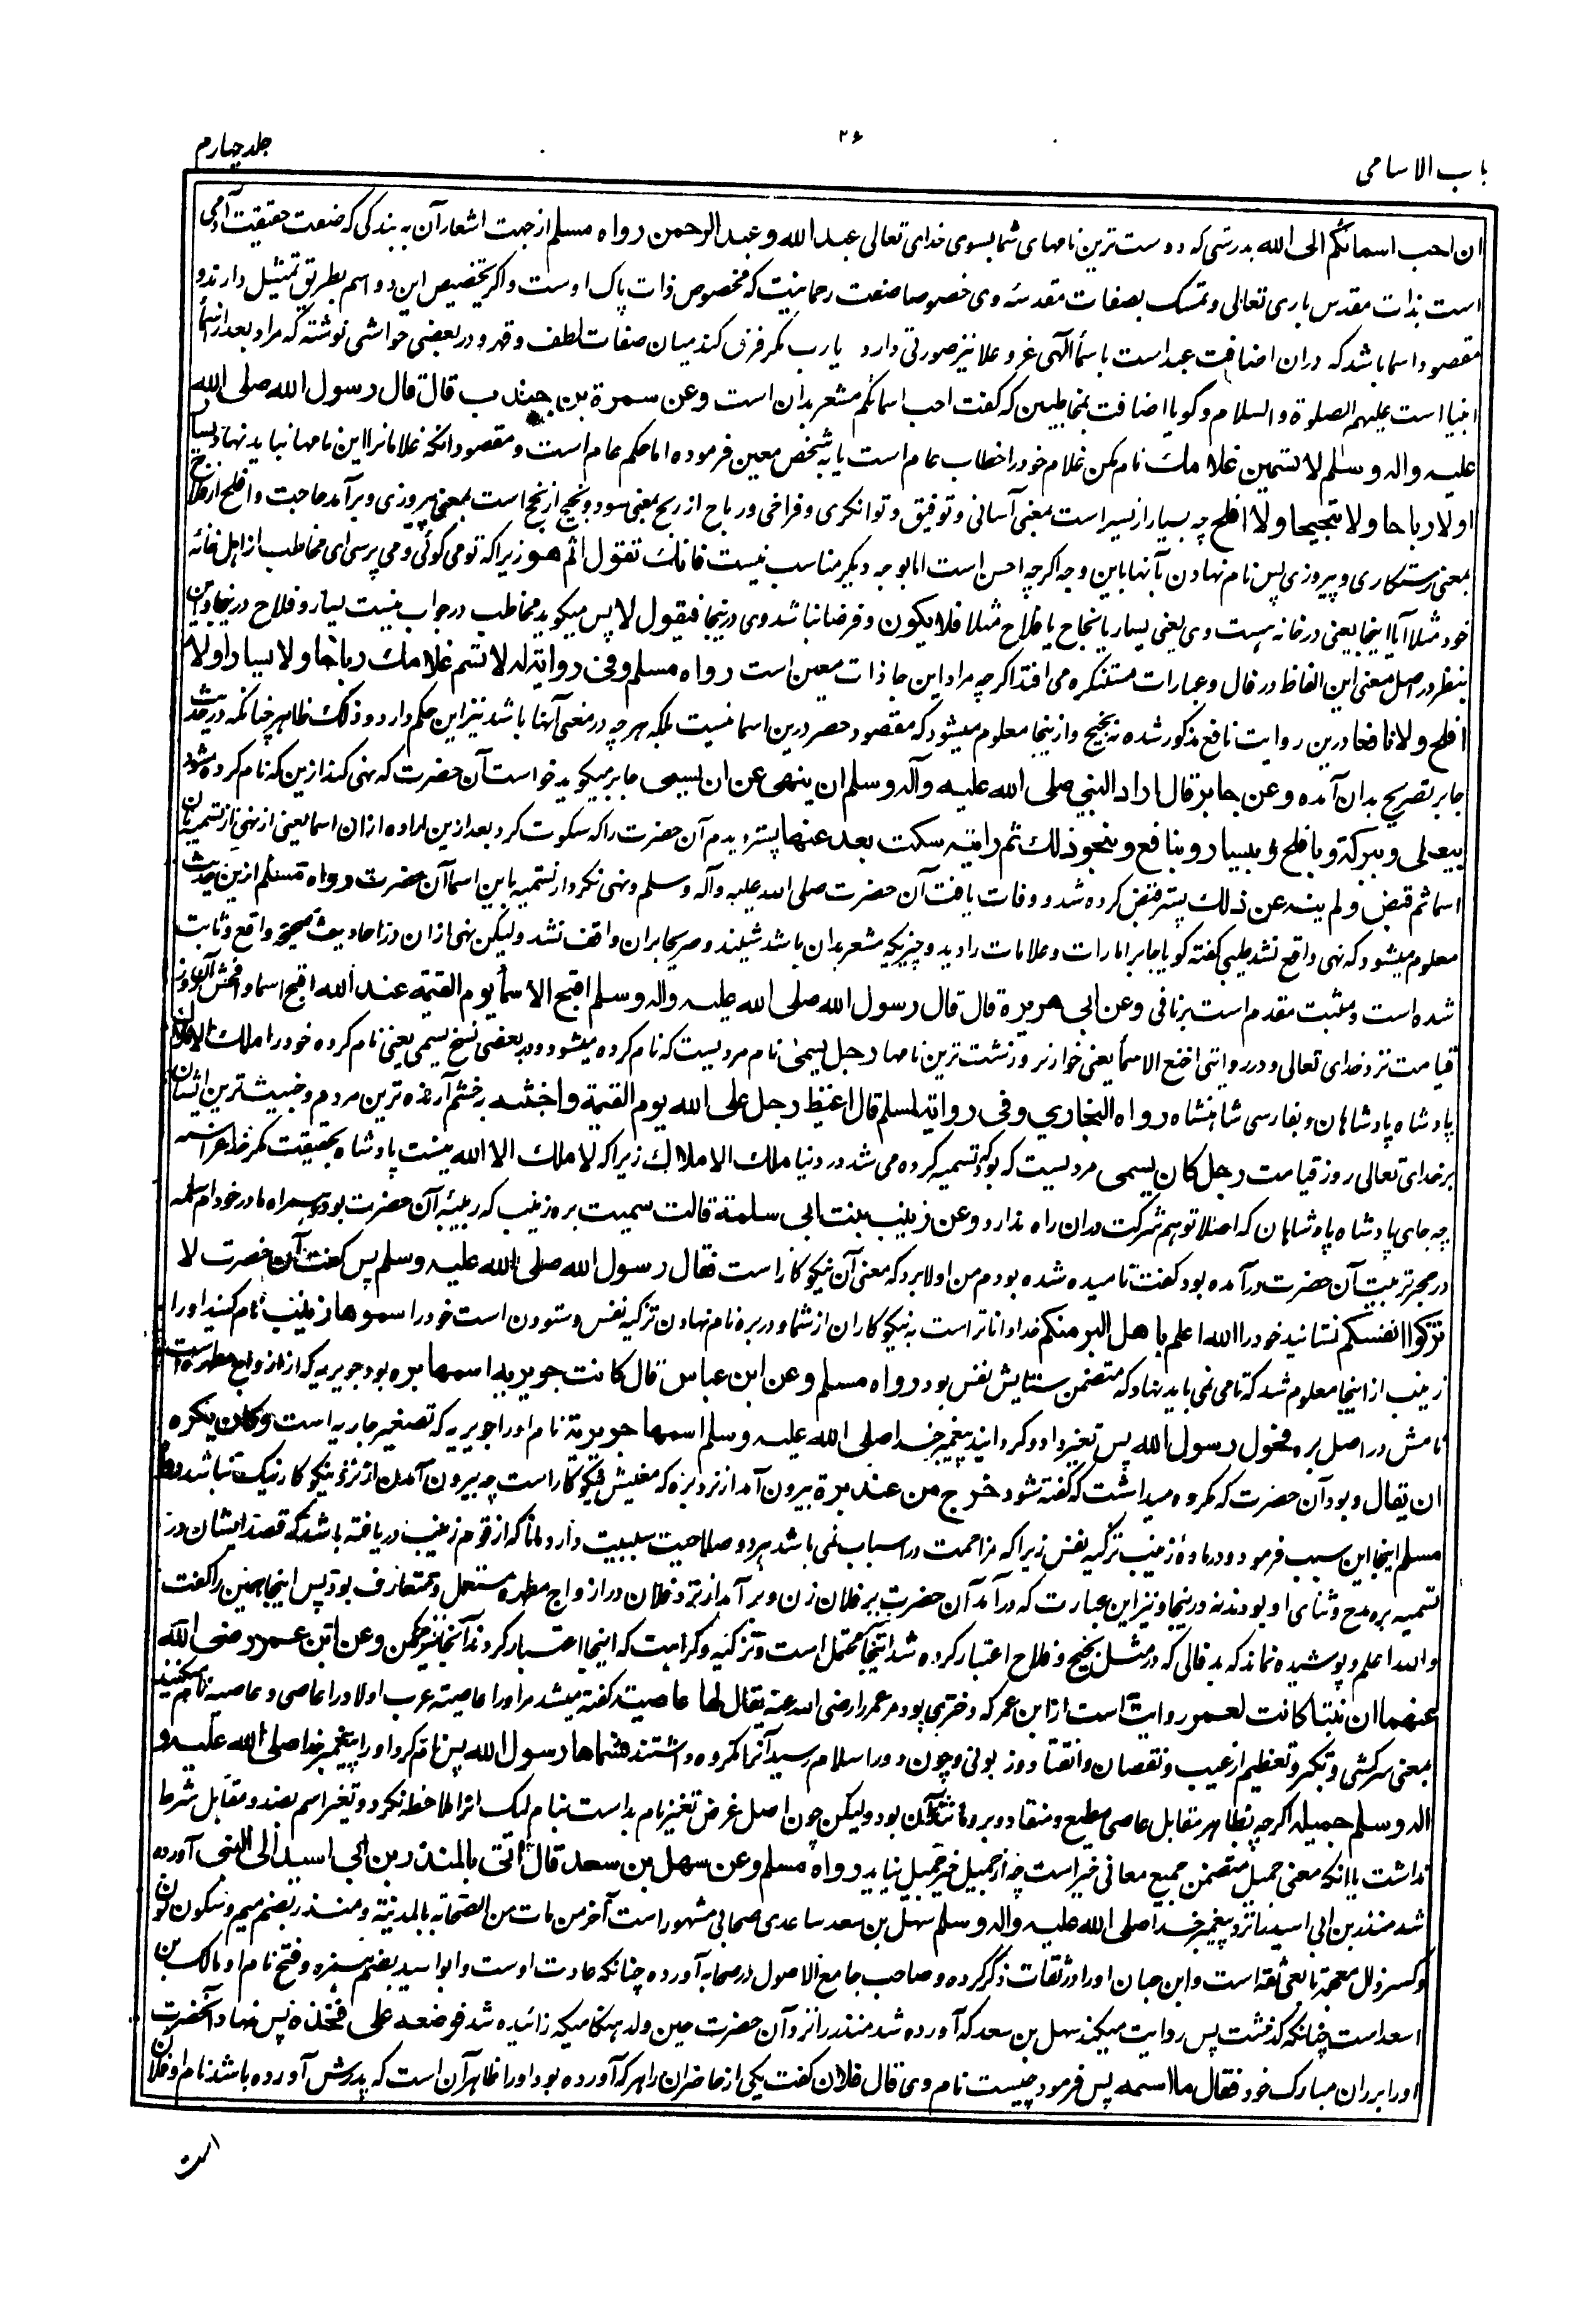 باب الاسامی
۲۶
جلد چهارم
ان احب اسمائكم الى الله بدرستی که دوست ترین نامهای شما بسوی خدای تعالی عبدالله وعبدالرحمن رواه مسلم از جهت اشعار آن به بندگی که صفت حقیقت آدمی
است بذات مقدس باری تعالی و تمسک بصفات مقدسه وی خصوصا صفت رحمانیت که مخصوص ذات پاک اوست واگر تخصیص این دو اسم بطریق تمثیل دارند و
مقصود اسما باشد که دران اضافت عبد است باسمأ الٰهی عز وعلا نیز صورتی دارد یارب مگر فرق کنند میان صفات لطف وقهر و در بعضی حواشی نوشته که مراد بعد از اسمأ
انبیا است علیهم الصلوة والسلام وگویا اضافت بمخاطبین که گفت احب اسمائکم مشعر بدان است وعن سمرة بن جندب قال قال رسول الله صلى الله
عليه واله وسلم لا تسمين غلامك نام مکن غلام خود را خطاب عام است یا به شخص معین فرموده اما حکم عام است ومقصود آنکه غلامانرا این نامها نباید نهاد يسارا
او لا رباحا ولا نجيحا ولا افلح چه یسار از یسر است بمعنی آسانی وتوفیق وتوانگری وفراخی ورباح از ربح بمعنی سود ونجیح از نجح است بمعنی پیروزی وبرآمد حاجت وافلح از فلاح
بمعنی رستگاری وپیروزی پس نام نهادن بآنها باین وجه اگرچه احسن است اما بوجه دیگر مناسب نیست فانك تقول اثم هو زیرا که تو می گوئی ومی پرسی ای مخاطب از اهل خانه
خود مثلا آیا اینجا یعنی در خانه هست وی یعنی یسار یا نجاح یا فلاح مثلا فلا يكون وفرضا نباشد وی درینجا فيقول لا پس میگوید مخاطب در جواب نیست یسار وفلاح درینجا واین
بنظر در اصل معنی این الفاظ در فال وعبارات مستنکره می افتد اگرچه مراد این جا ذات معین است رواه مسلم وفى رواية له لا تسم غلامك رباحا ولا يسارا ولا
افلح ولا نافعا درین روایت نافع مذکور شده نه نجیح وازینجا معلوم میشود که مقصود حصر درین اسما نیست بلکه هرچه در معنی آنها باشد نیز این حکم دارد وذلک ظاهر چنانکه در حدیث
جابر تصریح بدان آمده وعن جابر قال اراد النبي صلى الله عليه وآله وسلم ان ينهى عن ان يسمى جابر میگوید خواست آن حضرت که نهی کند ازین که نام کرده شود
بيعلى وببركة وبافلح وبيسار وبنافع وبنحو ذلك ثم رايته سكت بعد عنها پستر دیدم آن حضرت را که سکوت کرد بعد ازین اراده ازان اسما یعنی از نهی از تسمیه بآن
اسما ثم قبض ولم ينه عن ذلك پستر قبض کرده شد ووفات یافت آن حضرت صلی الله علیه وآله وسلم ونهی نکرد از تسمیه باین اسما آن حضرت رواه مسلم ازین حدیث
معلوم میشود که نهی واقع نشد طیبی گفته گویا جابر امارات وعلامات را دید وچیزیکه مشعر بدان باشد شنید وصریحا بران واقف نشد ولیکن نهی ازان در احادیث صحیحه واقع وثابت
شده است ومثبت مقدم است بر نافی وعن ابى هريرة قال قال رسول الله صلى الله عليه واله وسلم اقبح الاسمأ يوم القيمة عند الله اقبح اسما وافحش آنها روز
قیامت نزد خدای تعالی ودر روایتی اخنع الاسمأ یعنی خوارتر وزشت ترین نامها رجل يسمى نام مردیست که نام کرده میشود ودر بعضی نسخ یسمی یعنی نام کرده خود را ملك الاملاك
پادشاه پادشاهان وبفارسی شاهنشاه رواه البخاري وفى رواية لمسلم قال اغيظ رجل على الله يوم القيمة واخبثه بخشم آرنده ترین مردم وخبیث ترین ایشان
بر خدای تعالی روز قیامت رجل كان يسمى مردیست که بود تسمیه کرده می شد در دنیا ملك الاملاك زیرا که لا ملك الا الله نیست پادشاه بحقیقت مگر خدا عز اسمه
چه جای پادشاه پادشاهان که اصلا توهم شرکت دران راه ندارد وعن زينب بنت ابى سلمة قالت سميت بره زینب که ربیبه آن حضرت بود همراه مادر خود ام سلمه
در حجر تربیت آن حضرت درآمده بود گفت نامیده شده بودم من اولا بره که معنی آن نیکوکار است فقال رسول الله صلى الله عليه وسلم پس گفت آن حضرت لا
تزكوا انفسكم نستائید خود را الله اعلم باهل البر منكم خدا داناتر است به نیکوکاران از شما ودر بره نام نهادن تزکیه نفس وستودن است خود را سموها زينب نام کنید او را
زینب از اینجا معلوم شد که نامی نمی باید نهاد که متضمن ستایش نفس بود رواه مسلم وعن ابن عباس قال كانت جويرية اسمها بره بود جویریه که از ازواج مطهره است
نامش در اصل بره فحول رسول الله پس تغییر داد وگردانید پیغمبر خدا صلى الله عليه وسلم اسمها جويرية نام او را جویریه که تصغیر جاریه است وكان يكره
ان يقال وبود آن حضرت که مکروه میداشت که گفته شود خرج من عند برة بیرون آمد از نزد بره که معنیش نیکوکار است چه بیرون آمدن از نزد نیکوکار نیک نباشد رواه
مسلم اینجا این سبب فرمود ودر ماده زینب تزکیه نفس زیرا که مزاحمت در اسباب نمی باشد هر دو صلاحیت سببیت دارد ومانا که از قوم زینب دریافته باشد که قصد ایشان در
تسمیه بره مدح وثنای او بود نه درینجا ونیز این عبارت که درآمد آن حضرت بر فلان زن وبرآمد از نزد فلان در ازواج مطهره مستعمل ومتعارف بود پس اینجا همین را گفت
والله اعلم وپوشیده نماند که بد فالی که در مثل نجیح وفلاح اعتبار کرده شد اینجا محتمل است وتزکیه وکراهیت که اینجا اعتبار کردند آنجا نیز ممکن وعن ابن عمر رضى الله
عنهما ان بنتا كانت لعمر روایت است از ابن عمر که دختری بود مر عمر را رضی الله عنه يقال لها عاصية گفته میشد مر او را عاصیه عرب اولاد را عاصی وعاصیه نام میکنند
بمعنی سرکشی وتکبر وتعظیم از عیب ونقصان وانقیاد وزبونی وچون دور اسلام رسید آنرا مکروه داشتند فسماها رسول الله پس نام کرد او را پیغمبر خدا صلى الله عليه و
اله وسلم جميلة اگرچه بظاهر مقابل عاصی مطیع ومنقاد وبره ومانند آن بود ولیکن چون اصل غرض تغییر نام بد است بنام نیک انرا ملاحظه نکرد وتغییر اسم بضد ومقابل شرط
نداشت یا آنکه معنی جمیل متضمن جمیع معانی خیر است چه از جمیل غیر جمیل نیاید رواه مسلم وعن سهل بن سعد قال اتى بالمنذر بن ابى اسيد الى النبى آورده
شد منذر بن ابی اسید نزد پیغمبر خدا صلى الله عليه واله وسلم سهل بن سعد ساعدی صحابی مشهور است آخر من مات من الصحابه بالمدینة ومنذر بضم میم وسکون نون
وکسر ذال معجمه تابعی ثقه است وابن حبان او را در ثقات ذکر کرده وصاحب جامع الاصول در صحابه آورده چنانکه عادت اوست وابو اسید بضم همزه وفتح نام او مالک بن
اسعد است چنانکه گذشت پس روایت میکند سهل بن سعد که آورده شد منذر را نزد آن حضرت حين ولد هنگامیکه زائیده شد فوضعه على فخذه پس نهاد آنحضرت
او را بر ران مبارک خود فقال ما اسمه پس فرمود چیست نام وی قال فلان گفت یکی از حاضران را هر که آورده بود او را ظاهر آن است که پدرش آورده باشد نام او فلان
است